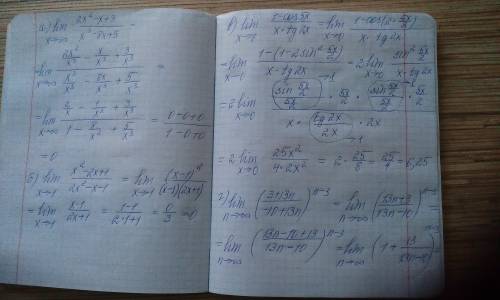 а) lim x→∞ (2x² - x + 3)/(x³ - 8x + 5) =
= lim x→∞ (2x²/x³ - x/x³ + 3/x³)/(x³/x³ - 8x/x³ + 5/x³) =
= lim x→∞ (2/x - 1/x² + 3/x³)/(1 - 8/x² + 5/x³) = (0-0+0)/(1-0+0)
= 0
б) lim x→1 (x² - 2x + 1)/(2x² - x - 1) = lim x→1 (x-1)²/((x-1)(2x+1))
= lim x→1 (x-1)/(2x+1) = (1-1)/(2·1+1) = 0/3 = 0
в) lim x→0 (1 - cos 5x)/(x · tg 2x) = lim x→0 (1 - cos(2 · 5x/2))/(x · tg 2x)
= lim x→0 (1 - (1 - 2 sin² 5x/2))/(x · tg 2x) = 2 lim x→0 (sin² 5x/2)/(x · tg 2x)
= 2 lim x→0 ((sin 5x/2)/(5x/2) · 5x/2 · (sin 5x/2)/(5x/2) · 5x/2)/(x · (tg 2x)/(2x) · 2x)
= 2 lim x→0 25x²/(4 · 2x²) = 2 · 25/8 = 25/4 = 6,25
г) lim n→∞ ((3+13n)/(-10+13n))^(n-3) = lim n→∞ ((13n+3)/(13n-10))^(n-3) =
= lim n→∞ ((13n-10+13)/(13n-10))^(n-3) = lim n→∞ (1 + 13/(13n-10))^(n-3) =